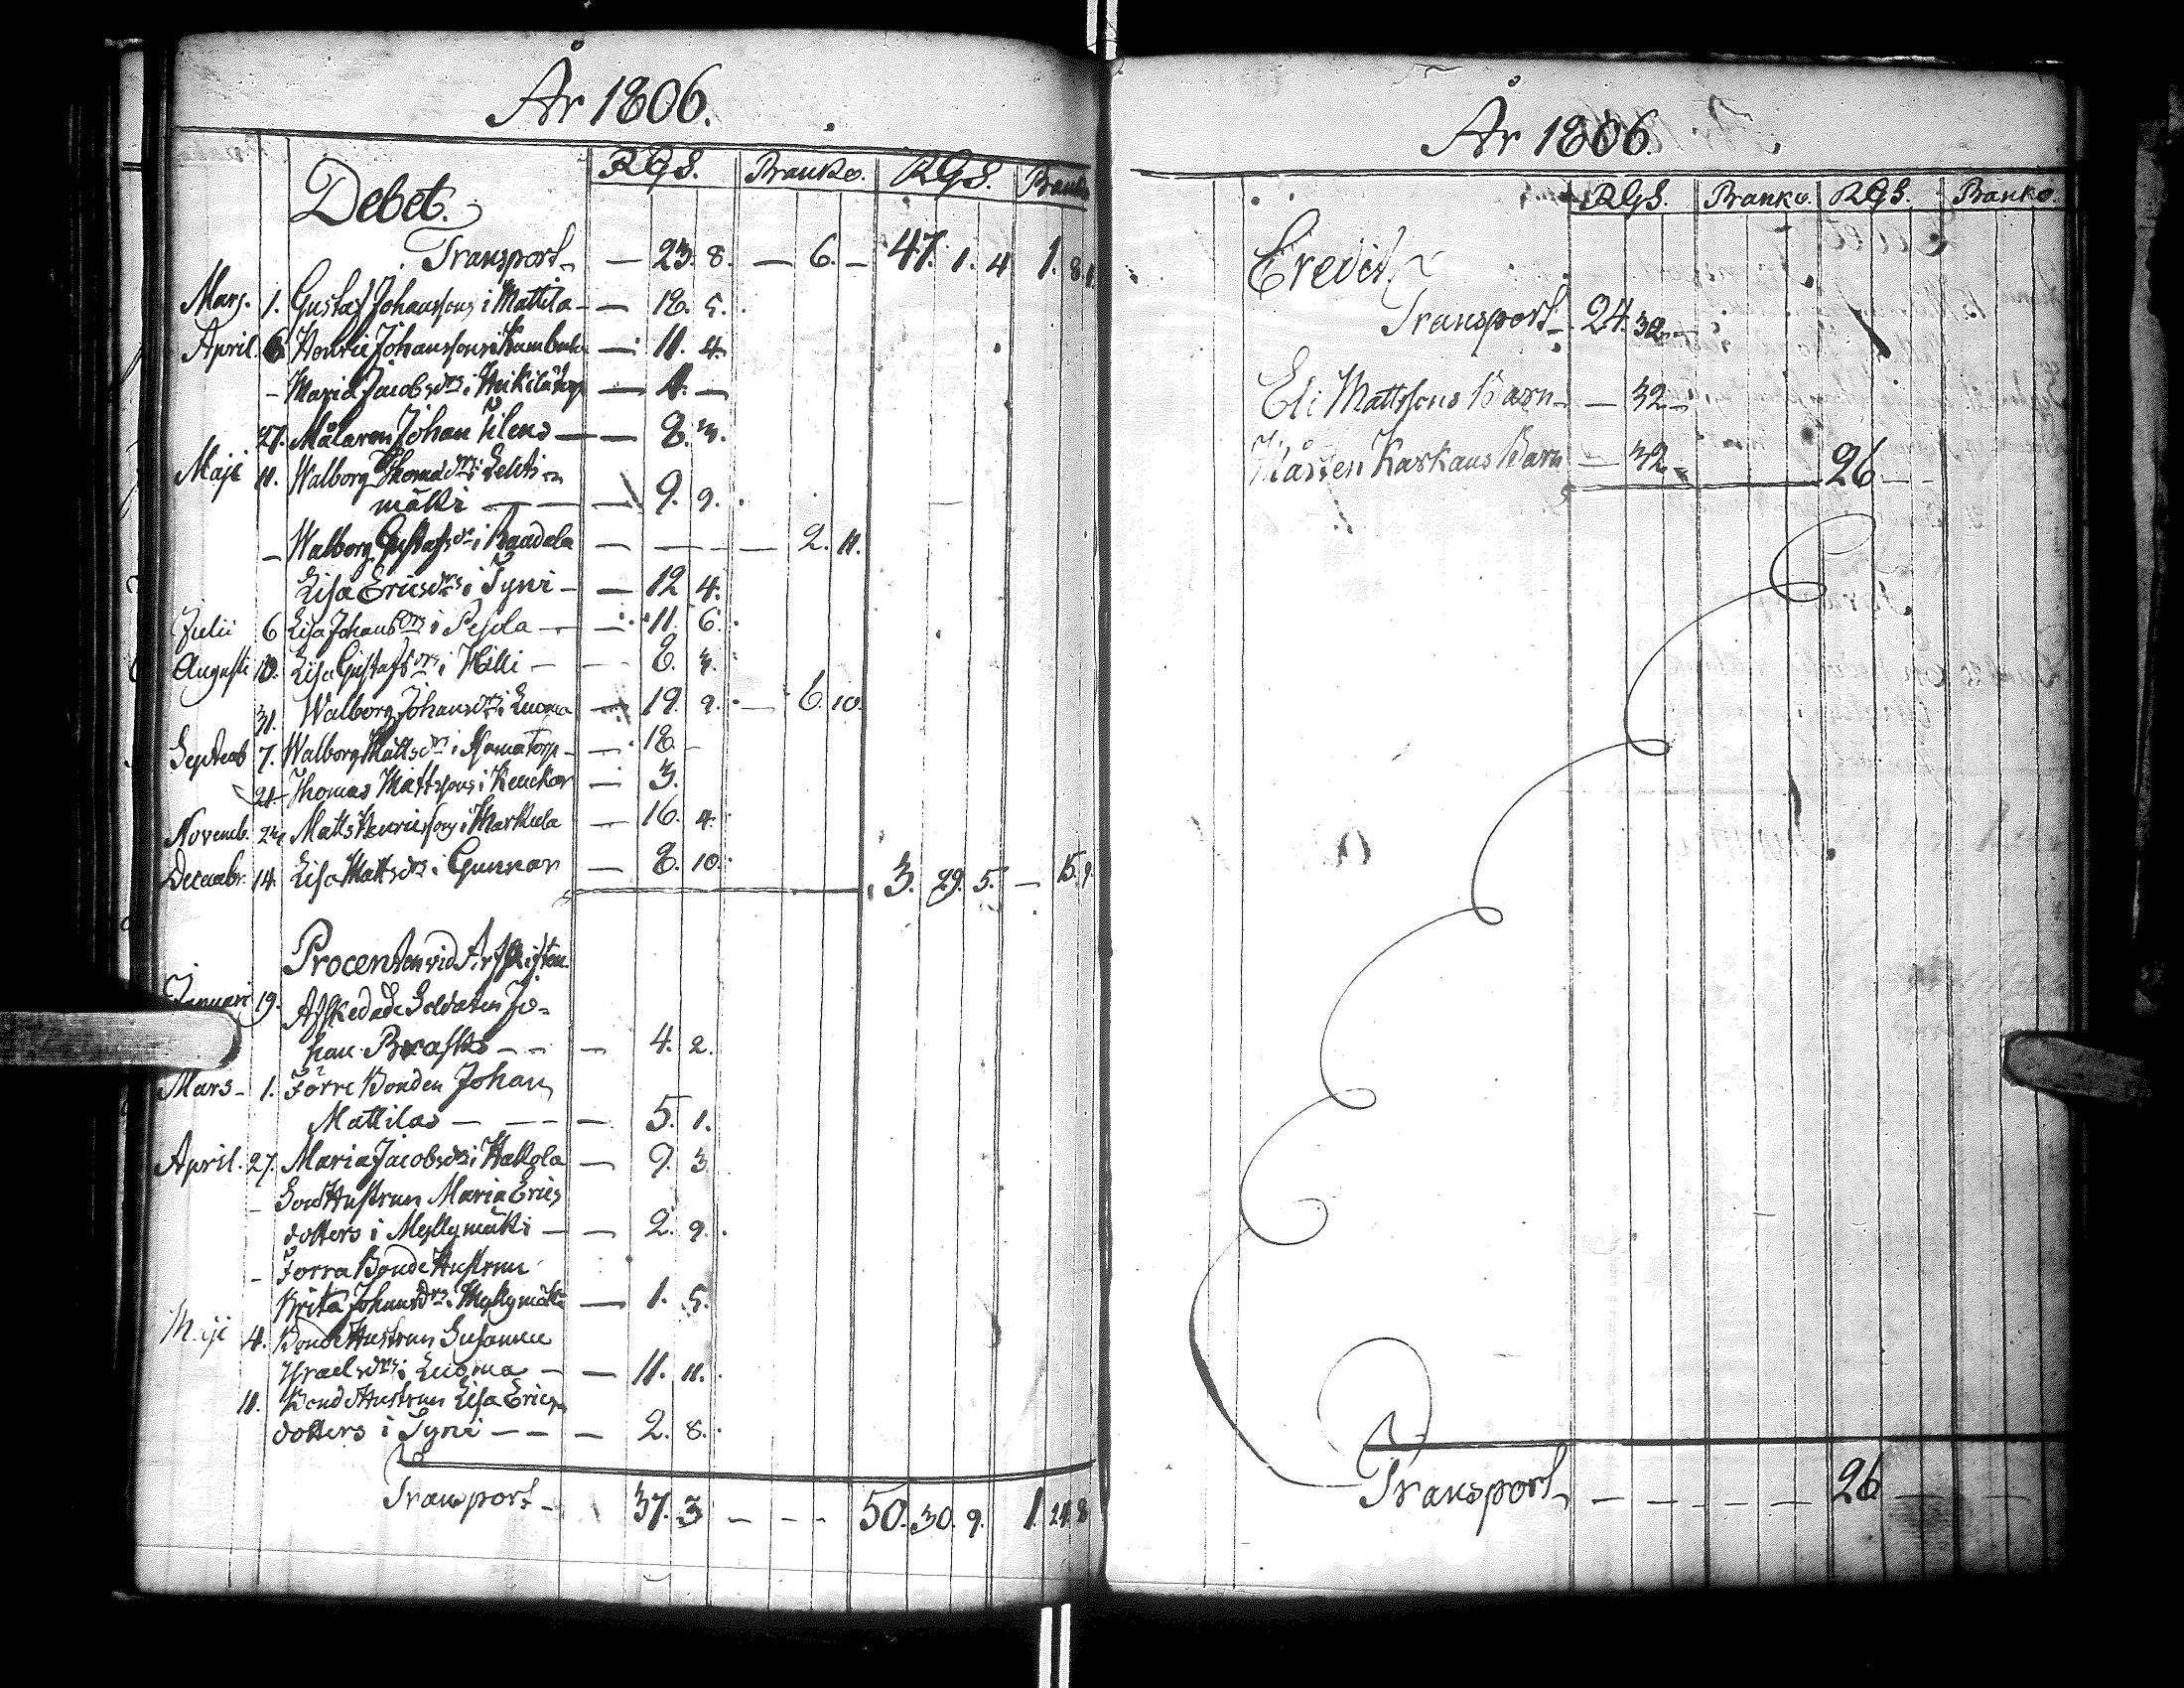 År 1806.
Debet. RGS. Banko. RGS. Banko
Transport — 23. 8. — 6. — 47. 1. 4 1. 8.
Mars. 1. Gustaf Johanssons i Mattila — 18. 5.
April 6 Henric Johanssons i — 11. 4.
- Maria Jacobsdrs i — 4. —
27. Målaren Johan Tilens — 8. 3.
Maji 11. Walborg Thomasdrs i Lehti-
mäki — 9. 9.
- Walborg Gustafsdrs i Raudala — — — 2. 11.
Lisa Ericsdrs i Tyni — 12 4.
Julii 6 Lisa Johansdrs i Pesola — 11. 6.
Augusti 10. Lisa Gustafsdrs i Hilli — 8. 3.
31. Walborg Johansdrs i Luoma — 19. 9. — 6. 10.
Septemb 7. Walborg Mattsdrs i Torp — 18 —
21. Thomas Mattssons i — 3.
Novemb. 24 Matts Henricssons i Markula — 16. 4.
Decembr. 14. Lisa Mattsdrs i Gunnar — 8. 10. 3. 29. 5. — 15. 9.
Procenten vid Arfskiften.
Januari 19. Afskedade Soldaten Jo-
han Brasks — — 4. 2.
Mars - 1. Förre Bonden Johan
Mattilas — — 5. 1.
April. 27 Maria Jacobsdrs i Hakola — 9. 3.
- Hustrun Maria Erics
dotters i Myllymäki — 2. 9.
- Förra Bonde Hustrun
Brita Johansdrs i Myllymäki — 1. 5.
Maji 4. Bonde Hustrun Susanna
Israelsdrs i Luoma — 11. 11.
11. Bonde Hustrun Lisa Erics
dotters i Tyni — — 2. 8.
Transport — 37. 3 — — — 50. 30. 9. 1. 24. 8
År 1806.
RGS. Banko. RGS. Banko
Credit
Transport — 24. 32 —
Eli Mattssons Barn — — 32 —
Mårten Karkaus Barn — 32 26 — —
Transport — — — — — 26 — —